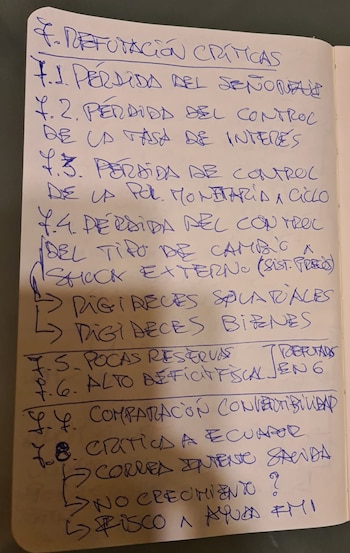 7. REFUTACIÓN CRÍTICAS
7.1 PÉRDIDA DEL SEÑOREAJE
7.2. PÉRDIDA DEL CONTROL
DE LA TASA DE INTERÉS
7.3. PÉRDIDA DE CONTROL
DE LA POL. MONETARIA A CICLO
7.4. PÉRDIDA DEL CONTROL
DEL TIPO DE CAMBIO A
SHOCK EXTERNO (SIST. PRECIO)
→ RIGIDECES SALARIALES
→ RIGIDECES BIENES
7.5. POCAS RESERVAS
7.6. ALTO DEFICIT FISCAL
] REFUTADAS
EN 6
7. COMPARACIÓN CONVERTIBILIDAD
8. CRITICA A ECUADOR
→ CORREA INTENTO SALIDA
→ NO CRECIMIENTO?
→ RISCO A AYUDA FMI